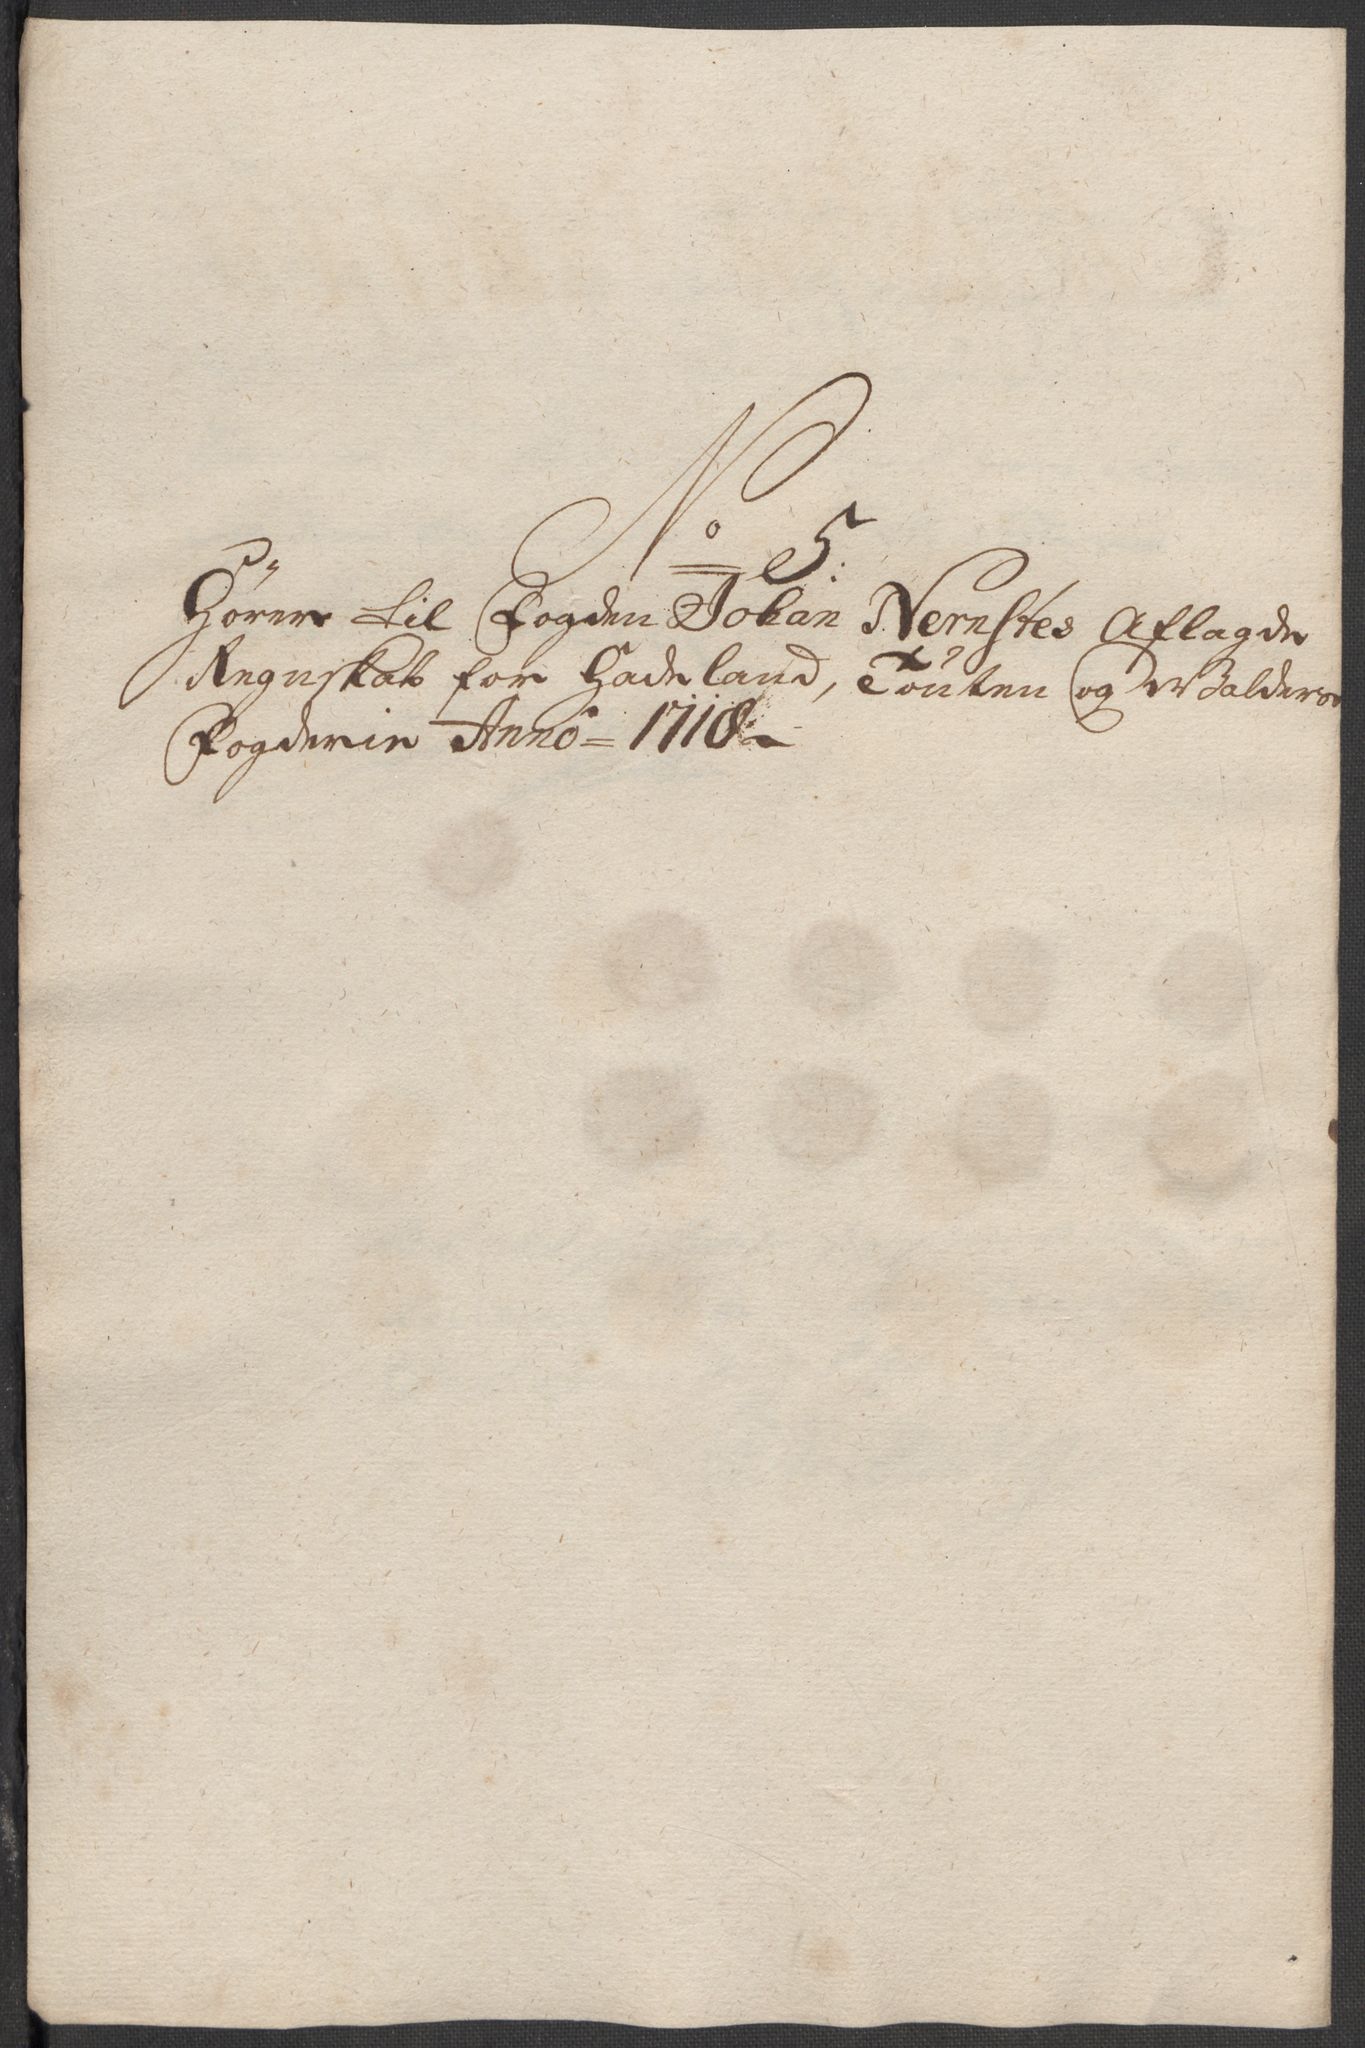 No 5:
Hörer til Fogden Johan Nernstes Aflagde
Regnskab for Hadeland, Toüten og Walders
Fogderie Anno = 1718